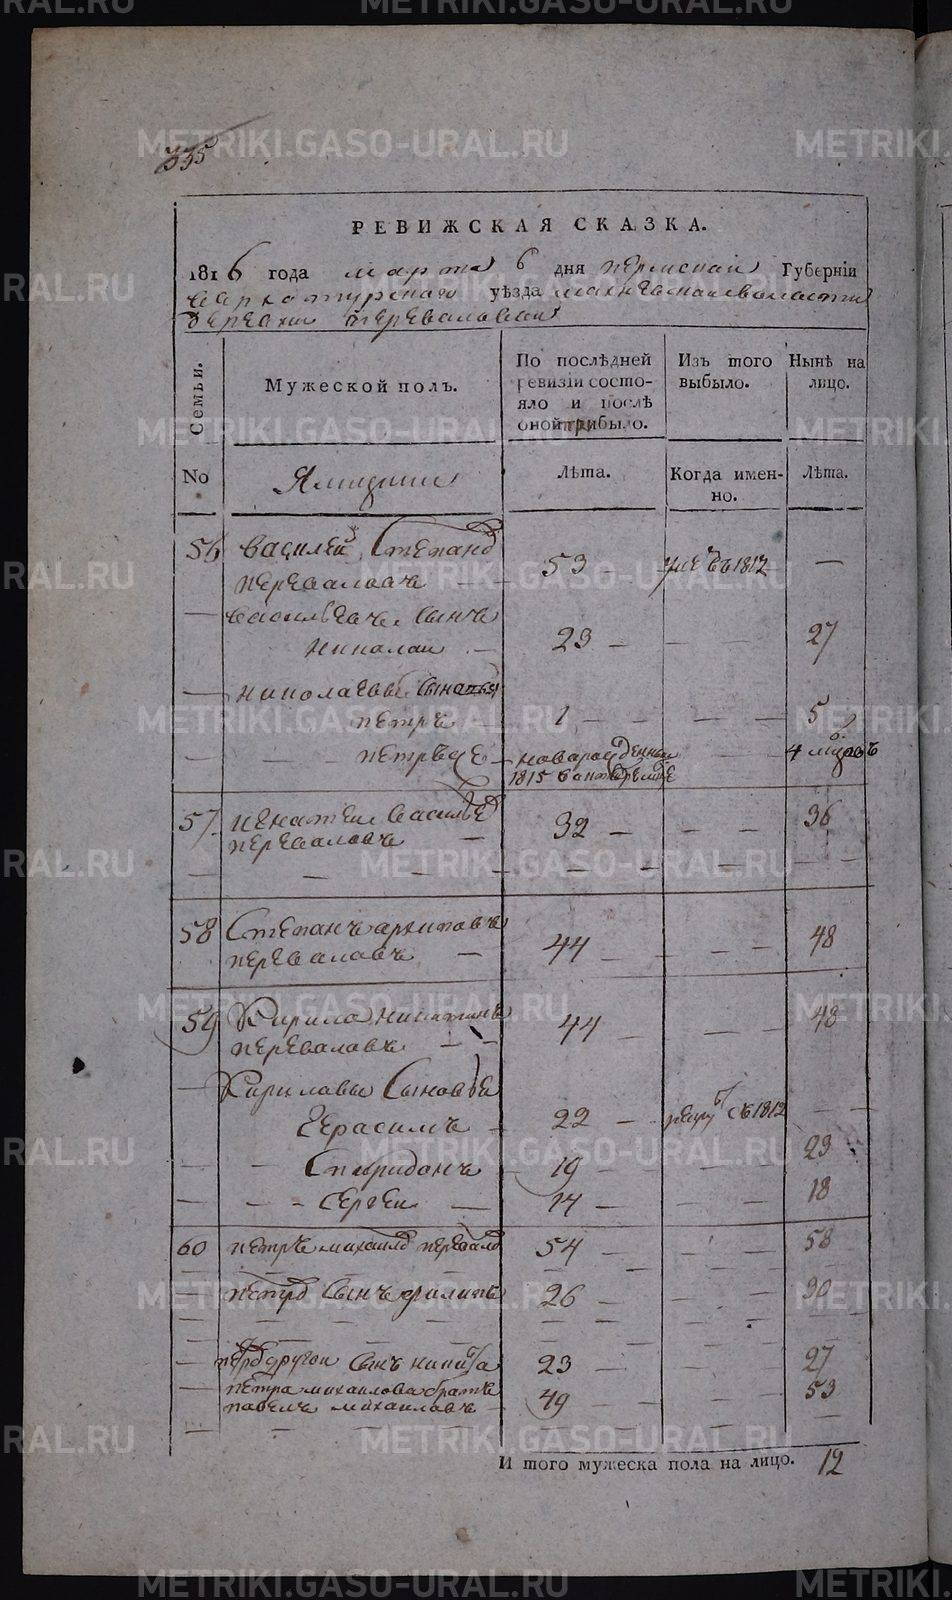 335
РЕВИЖСКАЯ СКАЗКА.
1816 года марта 6 дня пермской Губерніи
верхотурскаго уѣзда махневской волости
деревни переваловой
Семьи. Мужеской полъ. По послѣдней ревизіи состояло и послѣ оной прибыло. Изъ того выбыло. Нынѣ на лицо.
No Ямщики Лѣта. Когда именно. Лѣта.
56 василей Степанов
переваловъ 53 — умре въ 1812 —
васильевъ Сынъ
николаи 23 — 27
николаевы Сыновья
петръ 1 — 5
петръ же новорожденный 4 месяцовъ
1815 в октебре
57 игнатеи василье
переваловъ 32 — 36
58 Степанъ архиповъ
переваловъ 44 — 48
59 Кирила никитинъ
переваловъ 44 — 48
Кириловы Сыновье
Герасимъ 22 — рекру въ 1812
Спиридонъ 19 — 23
Сергеи 14 — 18
60 петръ михаило перевало 54 — 58
петро Сынъ филипъ 26 — 30
петро другои Сынъ никита 23 — 27
петра михаилова братъ
павелъ михаиловъ 49 — 53
И того мужеска пола на лицо. 12
METRIKI.GASO-URAL.RU